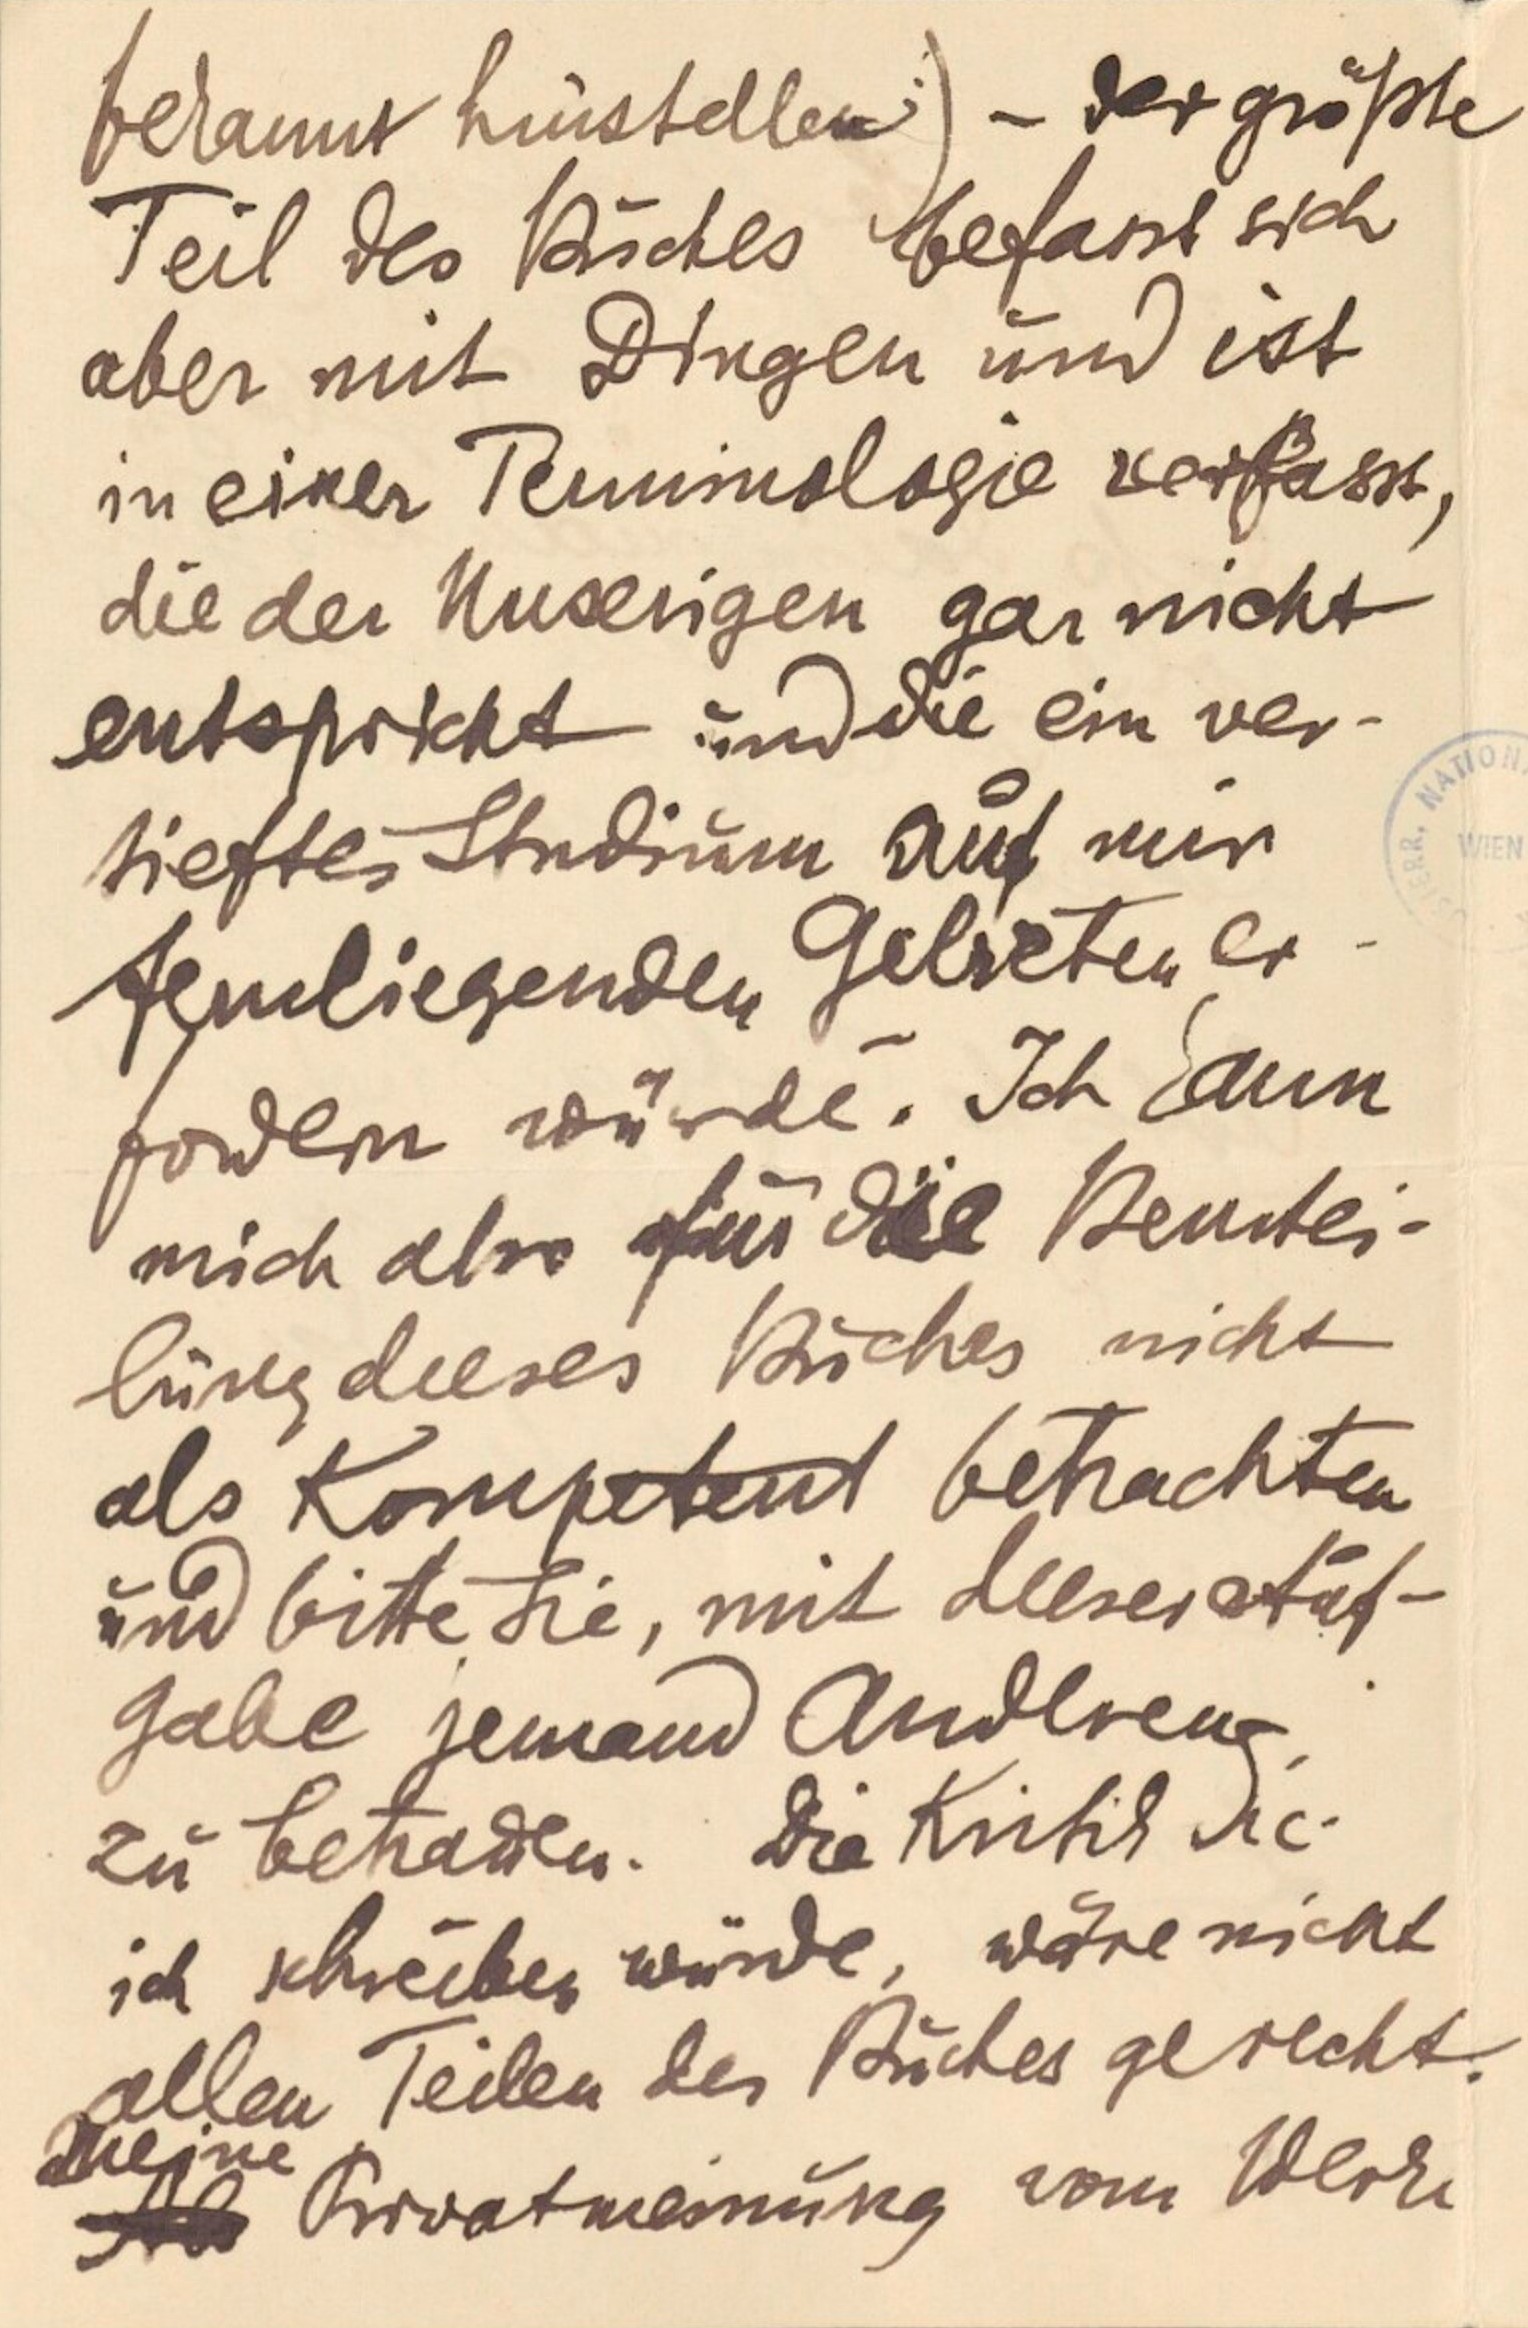 bekannt hinstellen) – der größte
Teil des Buches befasst sich
aber mit Dingen und ist
in einer Terminologie verfasst,
die der Unserigen gar nicht
entspricht und die ein ver-
tieftes Studium auf mir
fernliegenden Gebieten er-
fordern würde. Ich kann
mich also für die Beurtei-
lung dieses Buches nicht
als Kompetent betrachten
und bitte Sie, mit dieser Auf-
gabe jemand Anderen
zu betrauen. Die Kritik die
ich schreiben würde, wäre nicht
allen Teilen des Buches gerecht.
Meine
Privatmeinung vom Werk
ÖSTERR. NATION
WIEN